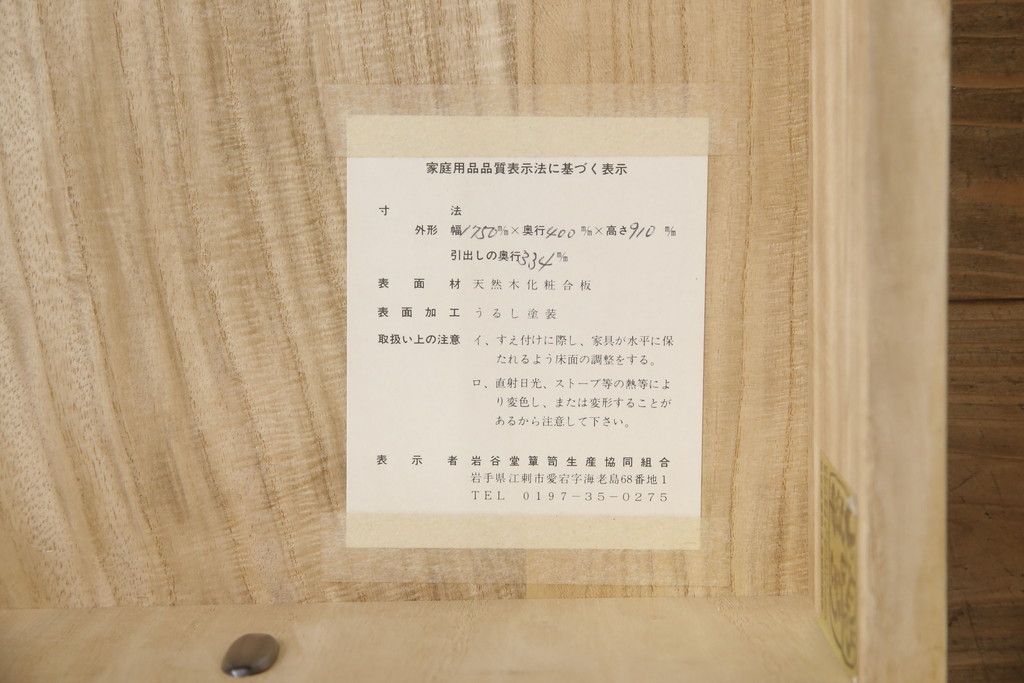 家庭用品品質表示法に基づく表示
寸法
外形 幅1750㎜×奥行400㎜×高さ910㎜
引出しの奥行334㎜
表面材 天然木化粧合板
表面加工 うるし塗装
取扱い上の注意 イ、すえ付けに際し、家具が水平に保
たれるよう床面の調整をする。
ロ、直射日光、ストーブ等の熱等によ
り変色し、または変形することが
あるから注意して下さい。
表示者 岩谷堂簞笥生産協同組合
岩手県江刺市愛宕字海老島68番地1
TEL 0197-35-0275